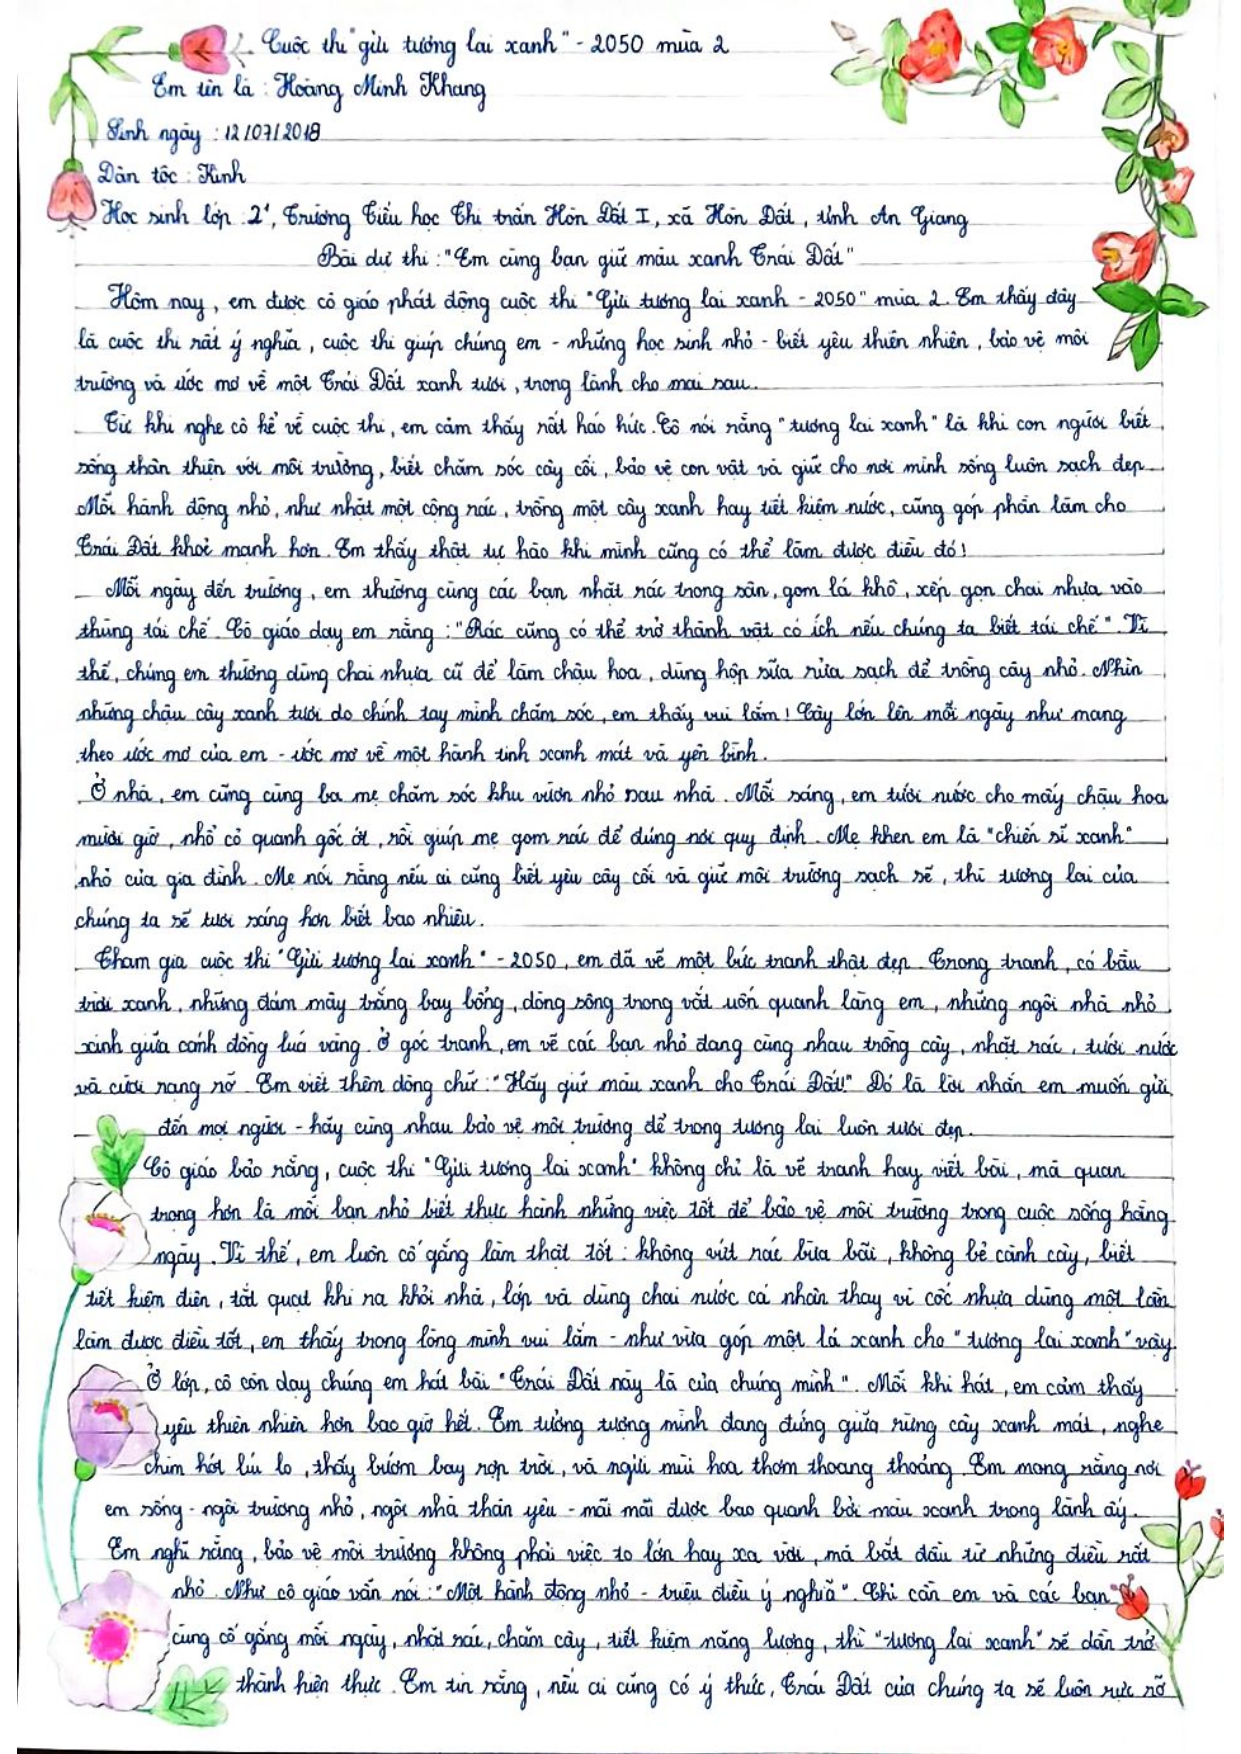 Cuộc thi "gửi tương lai xanh" - 2050 mùa 2
Em tên là : Hoàng Minh Khang
Sinh ngày : 12/07/2018
Dân tộc : Kinh
Học sinh lớp 2¹, Trường Tiểu học Thị trấn Hòn Đất I, xã Hòn Đất, tỉnh An Giang
Bài dự thi : "Em cùng bạn giữ màu xanh Trái Đất"
Hôm nay, em được cô giáo phát động cuộc thi "Gửi tương lai xanh - 2050" mùa 2. Em thấy đây
là cuộc thi rất ý nghĩa, cuộc thi giúp chúng em - những học sinh nhỏ - biết yêu thiên nhiên, bảo vệ môi
trường và ước mơ về một Trái Đất xanh tươi, trong lành cho mai sau.
Từ khi nghe cô kể về cuộc thi, em cảm thấy rất háo hức. Cô nói rằng "tương lai xanh" là khi con người biết
sống thân thiện với môi trường, biết chăm sóc cây cối, bảo vệ con vật và giữ cho nơi mình sống luôn sạch đẹp
Mỗi hành động nhỏ, như nhặt một cộng rác, trồng một cây xanh hay tiết kiệm nước, cũng góp phần làm cho
Trái Đất khoẻ mạnh hơn. Em thấy thật tự hào khi mình cũng có thể làm được điều đó!
Mỗi ngày đến trường, em thường cùng các bạn nhặt rác trong sân, gom lá khô, xếp gọn chai nhựa vào
thùng tái chế. Cô giáo dạy em rằng : "Rác cũng có thể trở thành vật có ích nếu chúng ta biết tái chế". Vì
thế, chúng em thường dùng chai nhựa cũ để làm chậu hoa, dùng hộp sữa rửa sạch để trồng cây nhỏ. Nhìn
những chậu cây xanh tươi do chính tay mình chăm sóc, em thấy vui lắm! Cây lớn lên mỗi ngày như mang
theo ước mơ của em - ước mơ về một hành tinh xanh mát và yên bình.
Ở nhà, em cũng cùng ba mẹ chăm sóc khu vườn nhỏ sau nhà. Mỗi sáng, em tưới nước cho mấy chậu hoa
mười giờ, nhổ cỏ quanh gốc ớt, rồi giúp mẹ gom rác để đúng nơi quy định. Mẹ khen em là "chiến sĩ xanh"
nhỏ của gia đình. Mẹ nói rằng nếu ai cũng biết yêu cây cối và giữ môi trường sạch sẽ, thì tương lai của
chúng ta sẽ tươi sáng hơn biết bao nhiêu.
Tham gia cuộc thi "Gửi tương lai xanh" - 2050, em đã vẽ một bức tranh thật đẹp. Trong tranh, có bầu
trời xanh, những đám mây trắng bay bổng, dòng sông trong vắt uốn quanh làng em, những ngôi nhà nhỏ
xinh giữa cánh đồng luá vàng. Ở góc tranh, em vẽ các bạn nhỏ đang cùng nhau trồng cây, nhặt rác, tưới nước
và cười rạng rỡ. Em viết thêm dòng chữ : "Hãy giữ màu xanh cho Trái Đất!" Đó là lời nhắn em muốn gửi
đến mọi người - hãy cùng nhau bảo vệ môi trường để trong tương lai luôn tươi đẹp.
Cô giáo bảo rằng, cuộc thi "Gửi tương lai xanh" không chỉ là vẽ tranh hay viết bài, mà quan
trọng hơn là mỗi bạn nhỏ biết thực hành những việc tốt để bảo vệ môi trường trong cuộc sống hằng
ngày. Vì thế, em luôn cố gắng làm thật tốt : không vứt rác bừa bãi, không bẻ cành cây, biết
tiết kiệm điện, tắt quạt khi ra khỏi nhà, lớp và dùng chai nước cá nhân thay vì cốc nhựa dùng một lần
làm được điều tốt, em thấy trong lòng mình vui lắm - như vừa góp một lá xanh cho "tương lai xanh" vậy.
Ở lớp, cô còn dạy chúng em hát bài "Trái Đất này là của chúng mình". Mỗi khi hát, em cảm thấy
yêu thiên nhiên hơn bao giờ hết. Em tưởng tượng mình đang đứng giữa rừng cây xanh mát, nghe
chim hót líu lo, thấy bướm bay rợp trời, và ngửi mùi hoa thơm thoang thoảng. Em mong rằng nơi
em sống - ngôi trường nhỏ, ngôi nhà thân yêu - mãi mãi được bao quanh bởi màu xanh trong lành ấy.
Em nghĩ rằng, bảo vệ môi trường không phải việc to lớn hay xa vời, mà bắt đầu từ những điều rất
nhỏ. Như cô giáo vẫn nói : "Một hành động nhỏ - triệu điều ý nghĩa". Chỉ cần em và các bạn
cùng cố gắng mỗi ngày, nhặt rác, chăm cây, tiết kiệm năng lượng, thì "tương lai xanh" sẽ dần trở
thành hiện thực. Em tin rằng, nếu ai cũng có ý thức, Trái Đất của chúng ta sẽ luôn rực rỡ